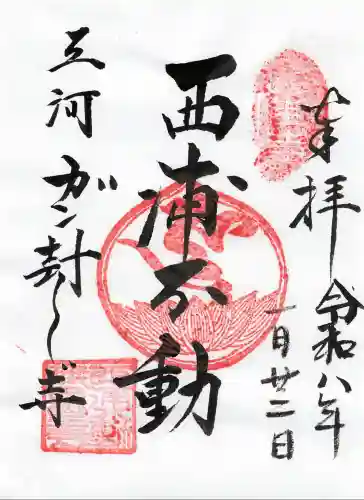 奉拝
令和八年
一月廿二日
西浦不動
三河
ガン封じ寺